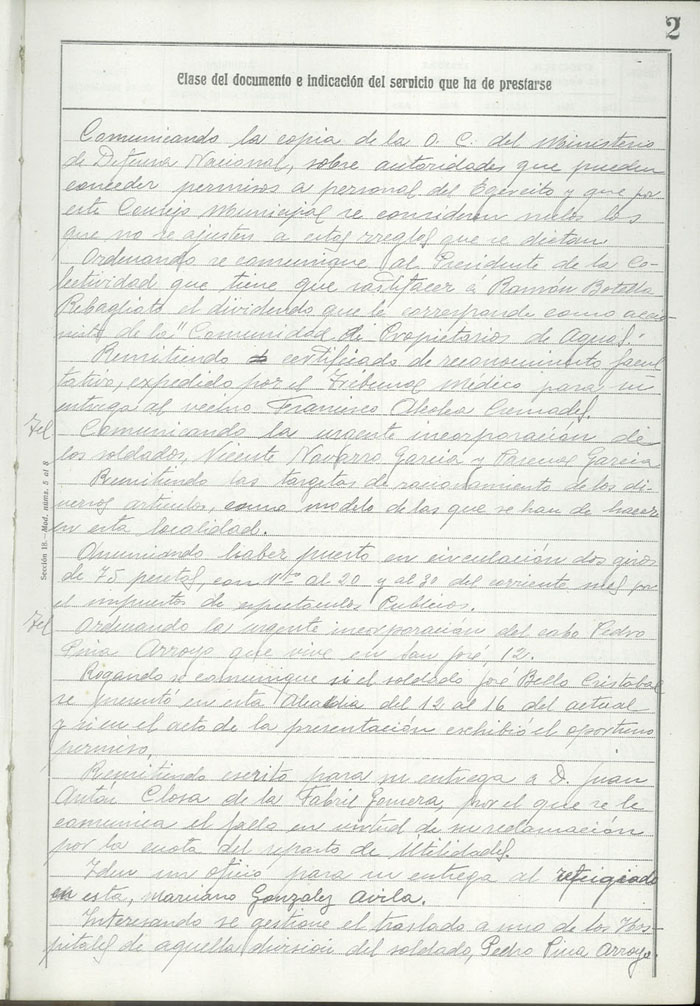 2
Clase del documento e indicación del servicio que ha de prestarse
Comunicando la copia de la O. C. del Ministerio
de Defensa Nacional, sobre autoridades que pueden
conceder permisos a personal del Egercito y que por
este Consejo Municipal se consideren nulos los
que no se ajusten a estas reglas que se dictan
Ordenando se comunique al Presidente de la Co-
lectividad que tiene que sastifacer á Ramón Botella
Rebagliato el dividendo que le corresponde como accio
nista de la "Comunidad de Propietarios de Aguas."
Remitiendo certificado de reconocimiento facul
tativo, expedido por el Tribunal Médico para su
entrega al vecino Francisco Alcolea Cremades.
Tel Comunicando la urgente incorporación de
los soldados, Vicente Navarro Garcia y Pascual Garcia
Remitiendo las targetas de racionamiento de los di-
versos articulos, como modelo de las que se han de hacer
en esta localidad.
Comunicando haber puesto en circulación dos giros
de 75 pesetas, con vto al 20 y al 30 del corriente mes por
el impuestos de espectaculos Publicos.
Tel Ordenando la urgente incorporación del cabo Pedro
Pina Arroyo que vive en San José, 12.
Rogando se comunique si el soldado José Bello Cristobal
se presentó en esta Alcaldia del 12 al 16 del actual
y si en el acto de la presentación exchibió el oportuno
permiso.
Remitiendo escrito para su entrega a D. Juan
Antón Closa de la Fabril Gomera, por el que se le
comunica el fallo en virtud de su reclamación
por la cuota del reparto de Utilidades.
Idem un oficio para su entrega al refugiado
en esta, Mariano Gonzalez Avila.
Interesando se gestione el traslado a uno de los Hos-
pitales de aquella división del soldado, Pedro Pina Arroyo.
Sección 18.—Mod. núms. 5 al 8